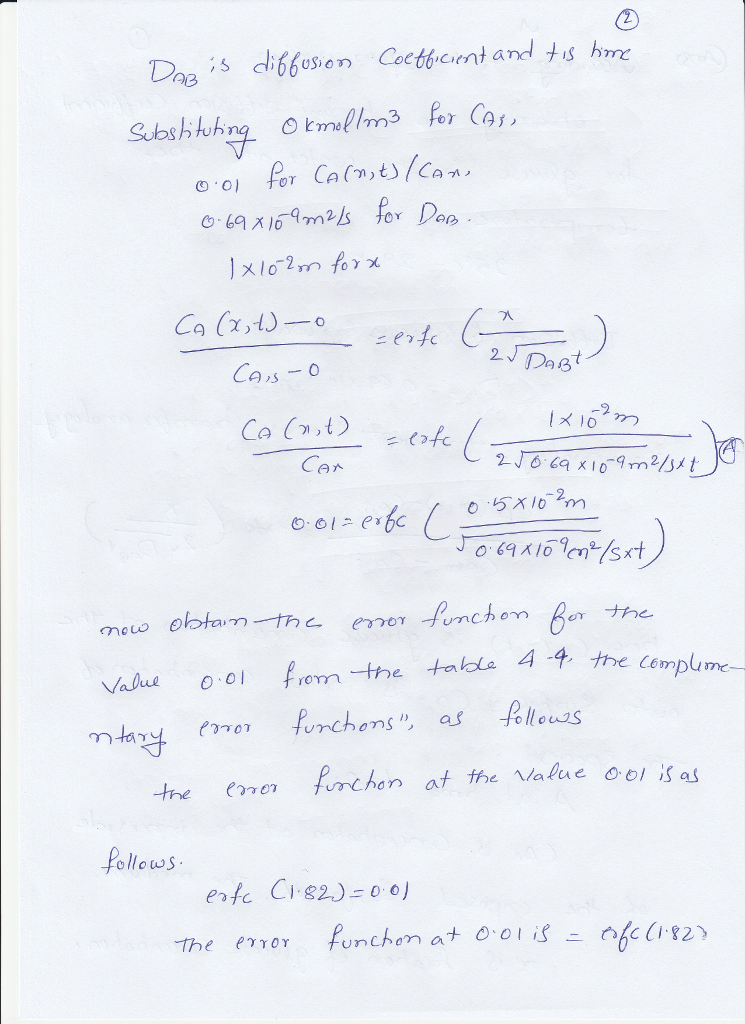 2
DAB is diffusion Coefficient and t is time
Substituting 0 kmol/m3 for CA,i,
0.01 for CA(x,t)/CA,s,
0.69 x 10-9 m2/s for DAB.
1x10-2m for x
CA (x,t) - 0 / CA,s - 0 = erfc ( x / 2√DABt )
CA (x,t) / CAs = erfc ( 1x10-2m / 2√0.69x10-9m2/sxt ) A
0.01 = erfc ( 0.5x10-2m / √0.69x10-9m2/sxt )
now obtain the error function for the
Value 0.01 from the table 4-4, the complime-
ntary error functions", as follows
the error function at the value 0.01 is as
follows.
erfc (1.82) = 0.01
The error function at 0.01 is = erfc (1.82)